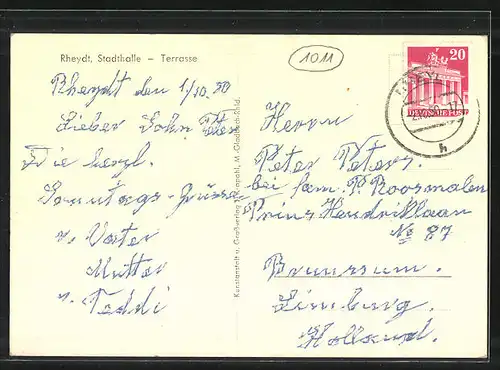 Rheydt, Stadthalle – Terrasse
1011
Rheydt den 1/10.50
Lieber Sohn
Die herzl.
Sonntags-Grüsse
v. Vater
Mutter
v. Teddi
Kunstanstalt u. Großverlag M.Gladbach-Rhld.
Herrn
Peter Peters.
bei fam. P. Roosmalen
Prins Hendriklaan
No 87
Brunssum.
Limburg.
Holland.
20
DEUTSCHE POST
h